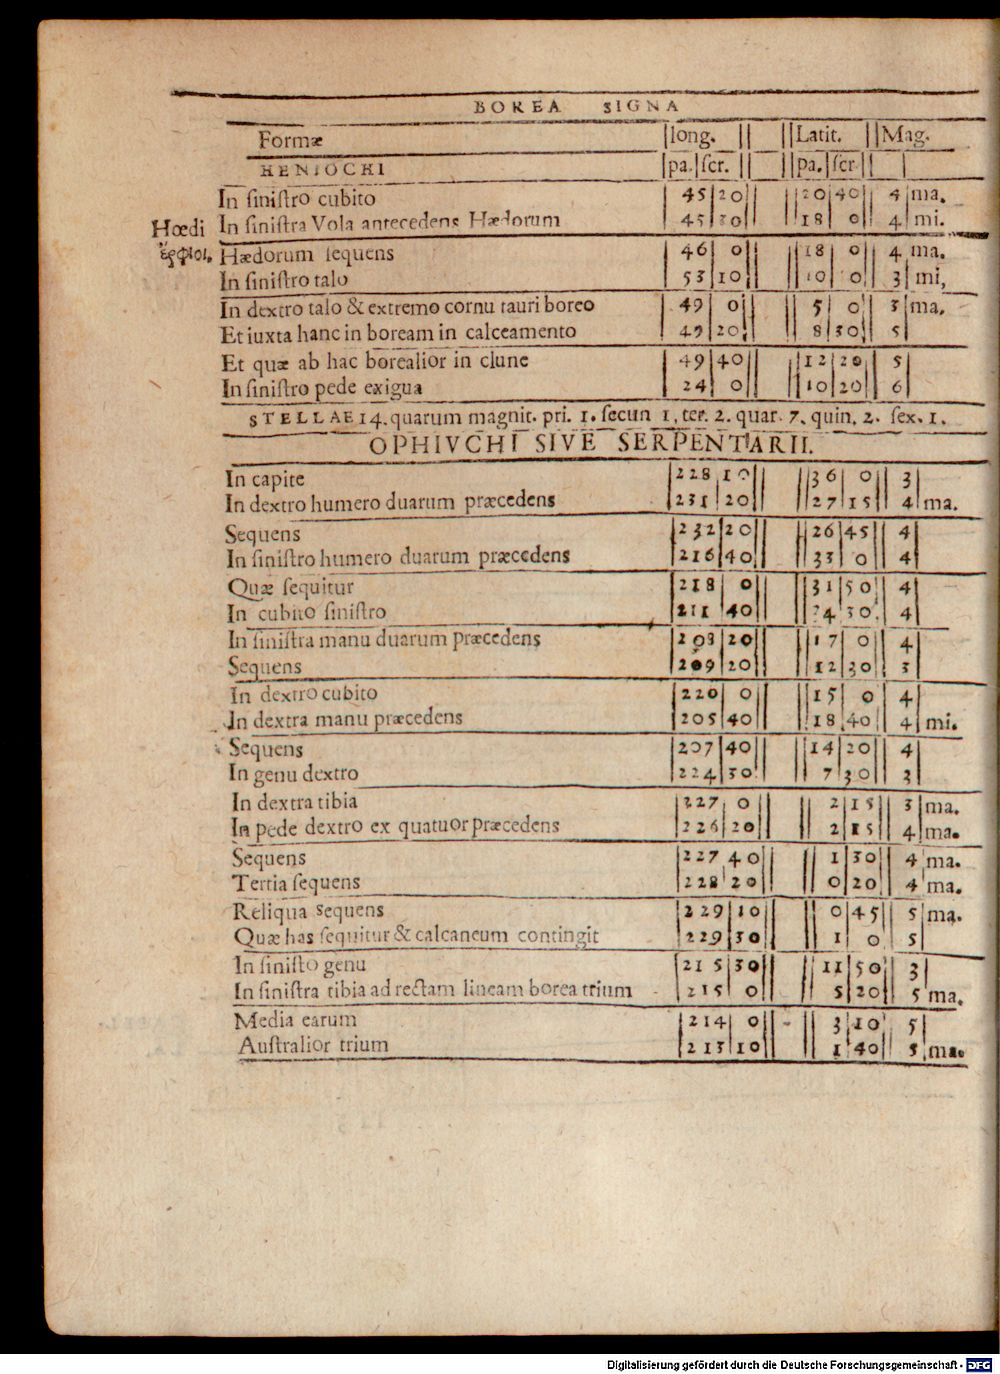 BOREA SIGNA
Formæ long. Latit. Mag.
HENIOCHI pa. ſcr. pa. ſcr
In ſiniſtro cubito 45 20 20 40 4 ma.
Hœdi In ſiniſtra Vola antecedens Hædorum 45 30 18 0 4 mi.
Hædorum ſequens 46 0 18 0 4 ma.
In ſiniſtro talo 53 10 10 0 3 mi,
In dextro talo & extremo cornu tauri boreo 49 0 5 0 3 ma,
Et iuxta hanc in boream in calceamento 49 20 8 30 5
Et quæ ab hac borealior in clune 49 40 12 20 5
In ſiniſtro pede exigua 24 0 10 20 6
STELLAE 14. quarum magnit. pri. 1. ſecun 1, ter. 2. quar. 7. quin. 2. ſex. 1.
OPHIVCHI SIVE SERPENTARII.
In capite 228 10 36 0 3
In dextro humero duarum præcedens 231 20 27 15 4 ma.
Sequens 232 20 26 45 4
In ſiniſtro humero duarum præcedens 216 40 33 0 4
Quæ ſequitur 218 0 31 50 4
In cubito ſiniſtro 211 40 24 30 4
In ſiniſtra manu duarum præcedens 208 20 17 0 4
Sequens 209 20 12 30 3
In dextro cubito 220 0 15 0 4
In dextra manu præcedens 205 40 18 40 4 mi.
Sequens 207 40 14 20 4
In genu dextro 224 30 7 30 3
In dextra tibia 227 0 2 15 3 ma.
In pede dextro ex quatuor præcedens 226 20 2 15 4 ma.
Sequens 227 40 1 30 4 ma.
Tertia ſequens 228 20 0 20 4 ma.
Reliqua sequens 229 10 0 45 5 ma.
Quæ has ſequitur & calcaneum contingit 229 30 1 0 5
In ſiniſto genu 215 30 11 50 3
In ſiniſtra tibia ad rectam lineam borea trium 215 0 5 20 5 ma.
Media earum 214 0 3 10 5
Auſtralior trium 213 10 1 40 5 ma.
Digitalisierung gefördert durch die Deutsche Forschungsgemeinschaft - DFG